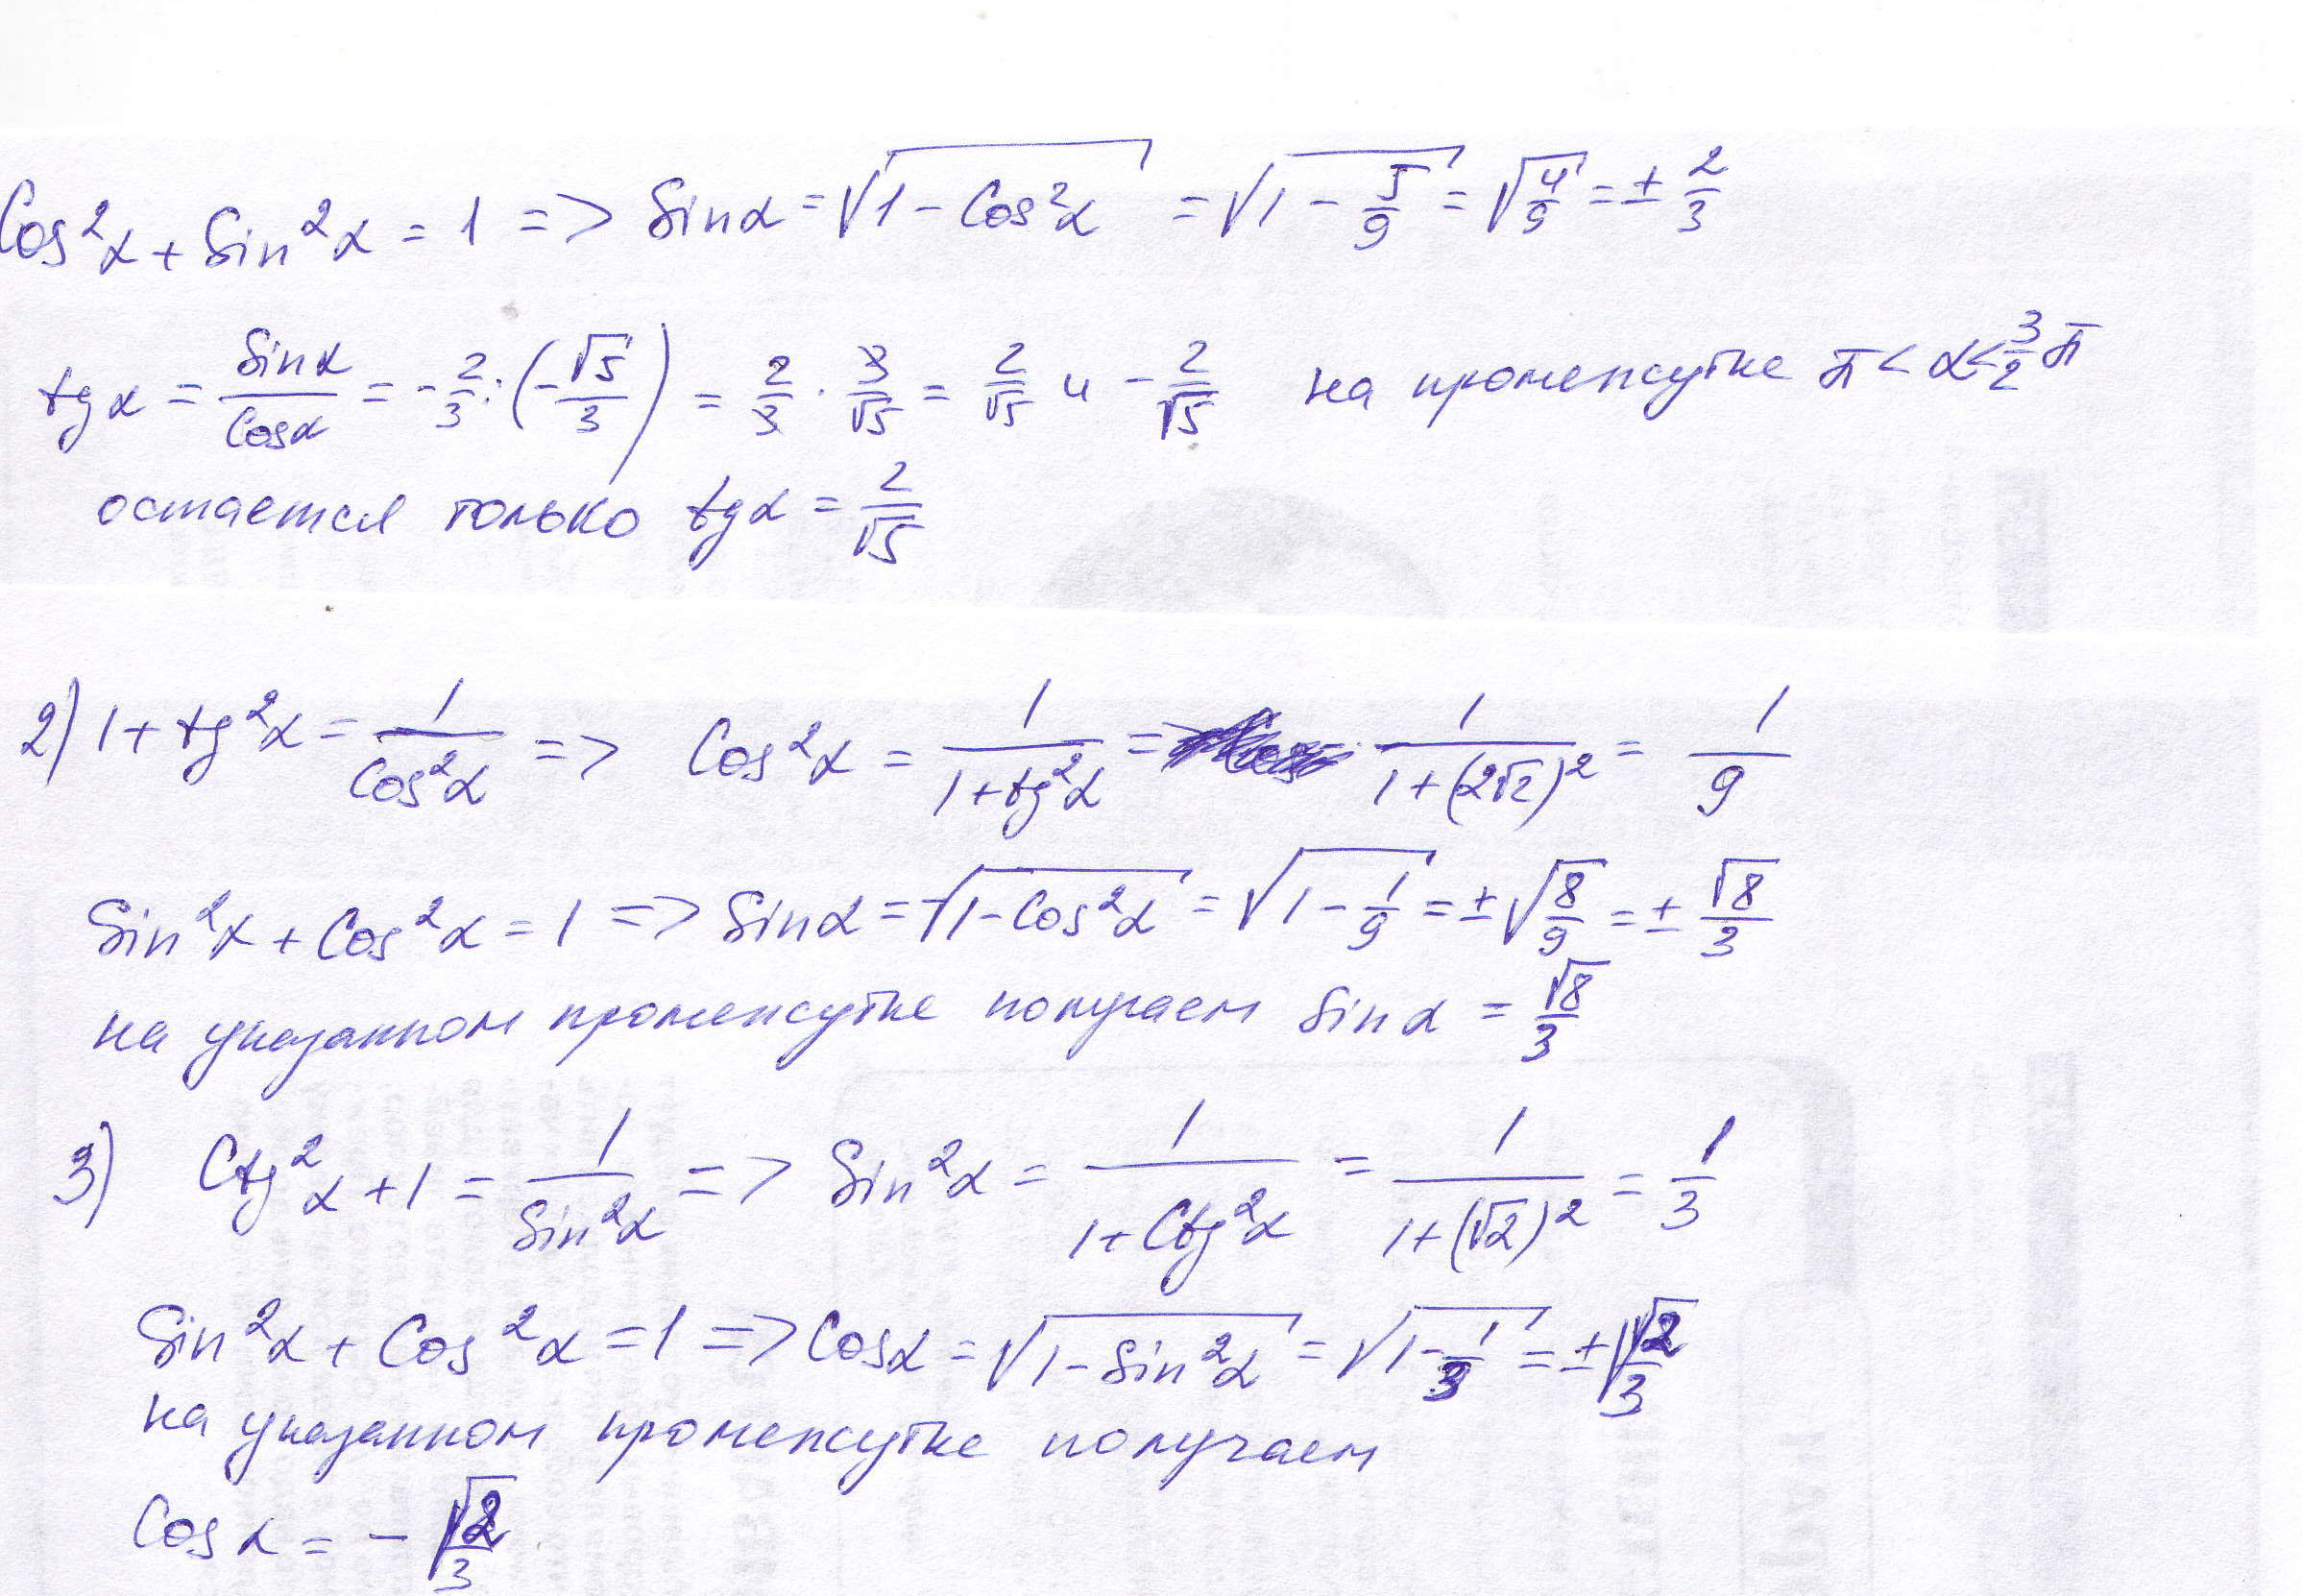 Cos²α + Sin²α = 1 => Sinα = √(1 - Cos²α) = √(1 - 5/9) = √(4/9) = ± 2/3
tgα = Sinα/Cosα = - 2/3 : (- √5/3) = 2/3 · 3/√5 = 2/√5 и - 2/√5 на промежутке π < α < 3/2 π
остается только tgα = 2/√5
2) 1 + tg²α = 1/Cos²α => Cos²α = 1/(1 + tg²α) = 1/(1 + (2√2)²) = 1/9
Sin²α + Cos²α = 1 => Sinα = √(1 - Cos²α) = √(1 - 1/9) = ± √(8/9) = ± √8/3
на указанном промежутке получаем Sinα = √8/3
3) Ctg²α + 1 = 1/Sin²α => Sin²α = 1/(1 + Ctg²α) = 1/(1 + (√2)²) = 1/3
Sin²α + Cos²α = 1 => Cosα = √(1 - Sin²α) = √(1 - 1/3) = ± √(2/3)
на указанном промежутке получаем
Cosα = - √(2/3)